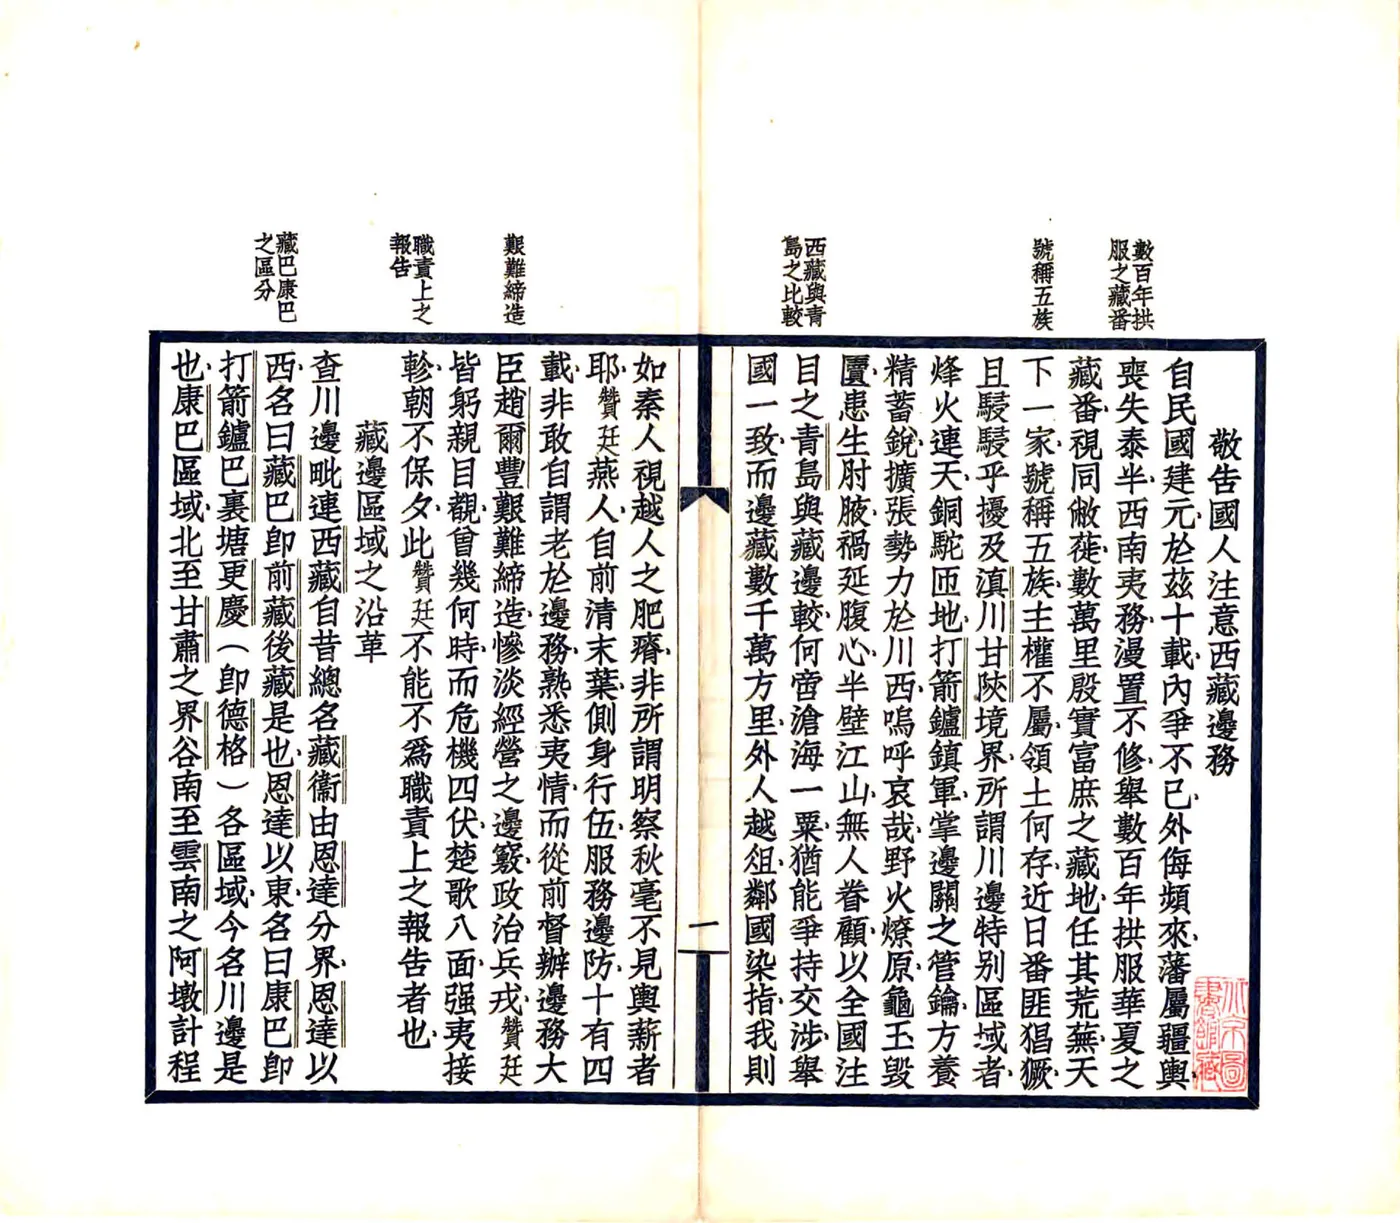 數百年拱
服之藏番
號稱五族
西藏與青
島之比較
敬告國人注意西藏邊務
自民國建元於茲十載內爭不已外侮頻來藩屬疆輿
喪失泰半西南夷務漫置不修舉數百年拱服華夏之
藏番視同敝蓰數萬里殷實富庶之藏地任其荒蕪天
下一家號稱五族主權不屬領土何存近日番匪猖獗
且駸駸乎擾及滇川甘陝境界所謂川邊特別區域者
烽火連天銅駝匝地打箭鑪鎮軍掌邊關之管鑰方養
精蓄銳擴張勢力於川西嗚呼哀哉野火燎原龜玉毀
匵患生肘腋禍延腹心半壁江山無人眷顧以全國注
目之青島與藏邊較何啻滄海一粟猶能爭持交涉舉
國一致而邊藏數千萬方里外人越俎鄰國染指我則
一
艱難締造
職責上之
報告
藏巴康巴
之區分
如秦人視越人之肥瘠非所謂明察秋毫不見輿薪者
耶贊廷燕人自前清末葉側身行伍服務邊防十有四
載非敢自謂老於邊務熟悉夷情而從前督辦邊務大
臣趙爾豐艱難締造慘淡經營之邊竅政治兵戎贊廷
皆躬親目覩曾幾何時而危機四伏楚歌八面强夷接
軫朝不保夕此贊廷不能不爲職責上之報告者也
藏邊區域之沿革
查川邊毗連西藏自昔總名藏衞由恩達分界恩達以
西名曰藏巴卽前藏後藏是也恩達以東名曰康巴卽
打箭鑪巴裏塘更慶（卽德格）各區域今名川邊是
也康巴區域北至甘肅之界谷南至雲南之阿墩計程
北京圖
書館藏